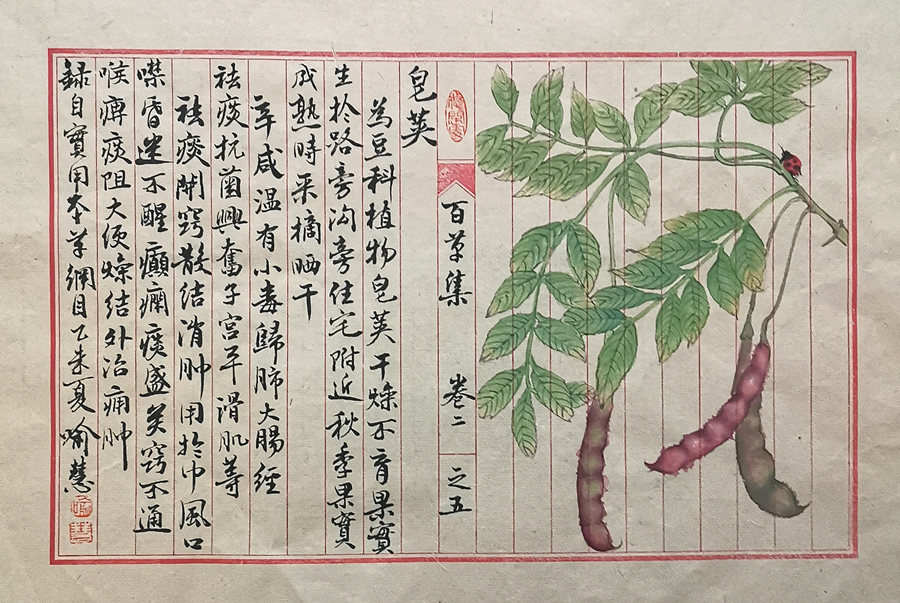 百草集 卷二 之五
皂荚
為豆科植物皂荚干燥不育果實
生於路旁沟旁住宅附近秋季果實
成熟時采摘晒干
辛咸温有小毒歸肺大腸經
祛痰抗菌興奮子宫平滑肌等
祛痰開窍散结消肿用於中風口
噤昏迷不醒癲癇痰盛关窍不通
喉痹痰阻大便燥结外治痈肿
録自實用本草綱目乙未夏喻慧